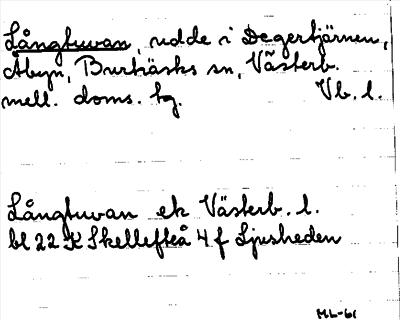 Långtuvan, udde i Degertjärnen,
Åbyn, Burträsks sn, Västerb.
mell. doms. tg. Vb. l.
Långtuvan ek Västerb. l.
bl 22 K Skellefteå 4 f Ljusheden
ML-61